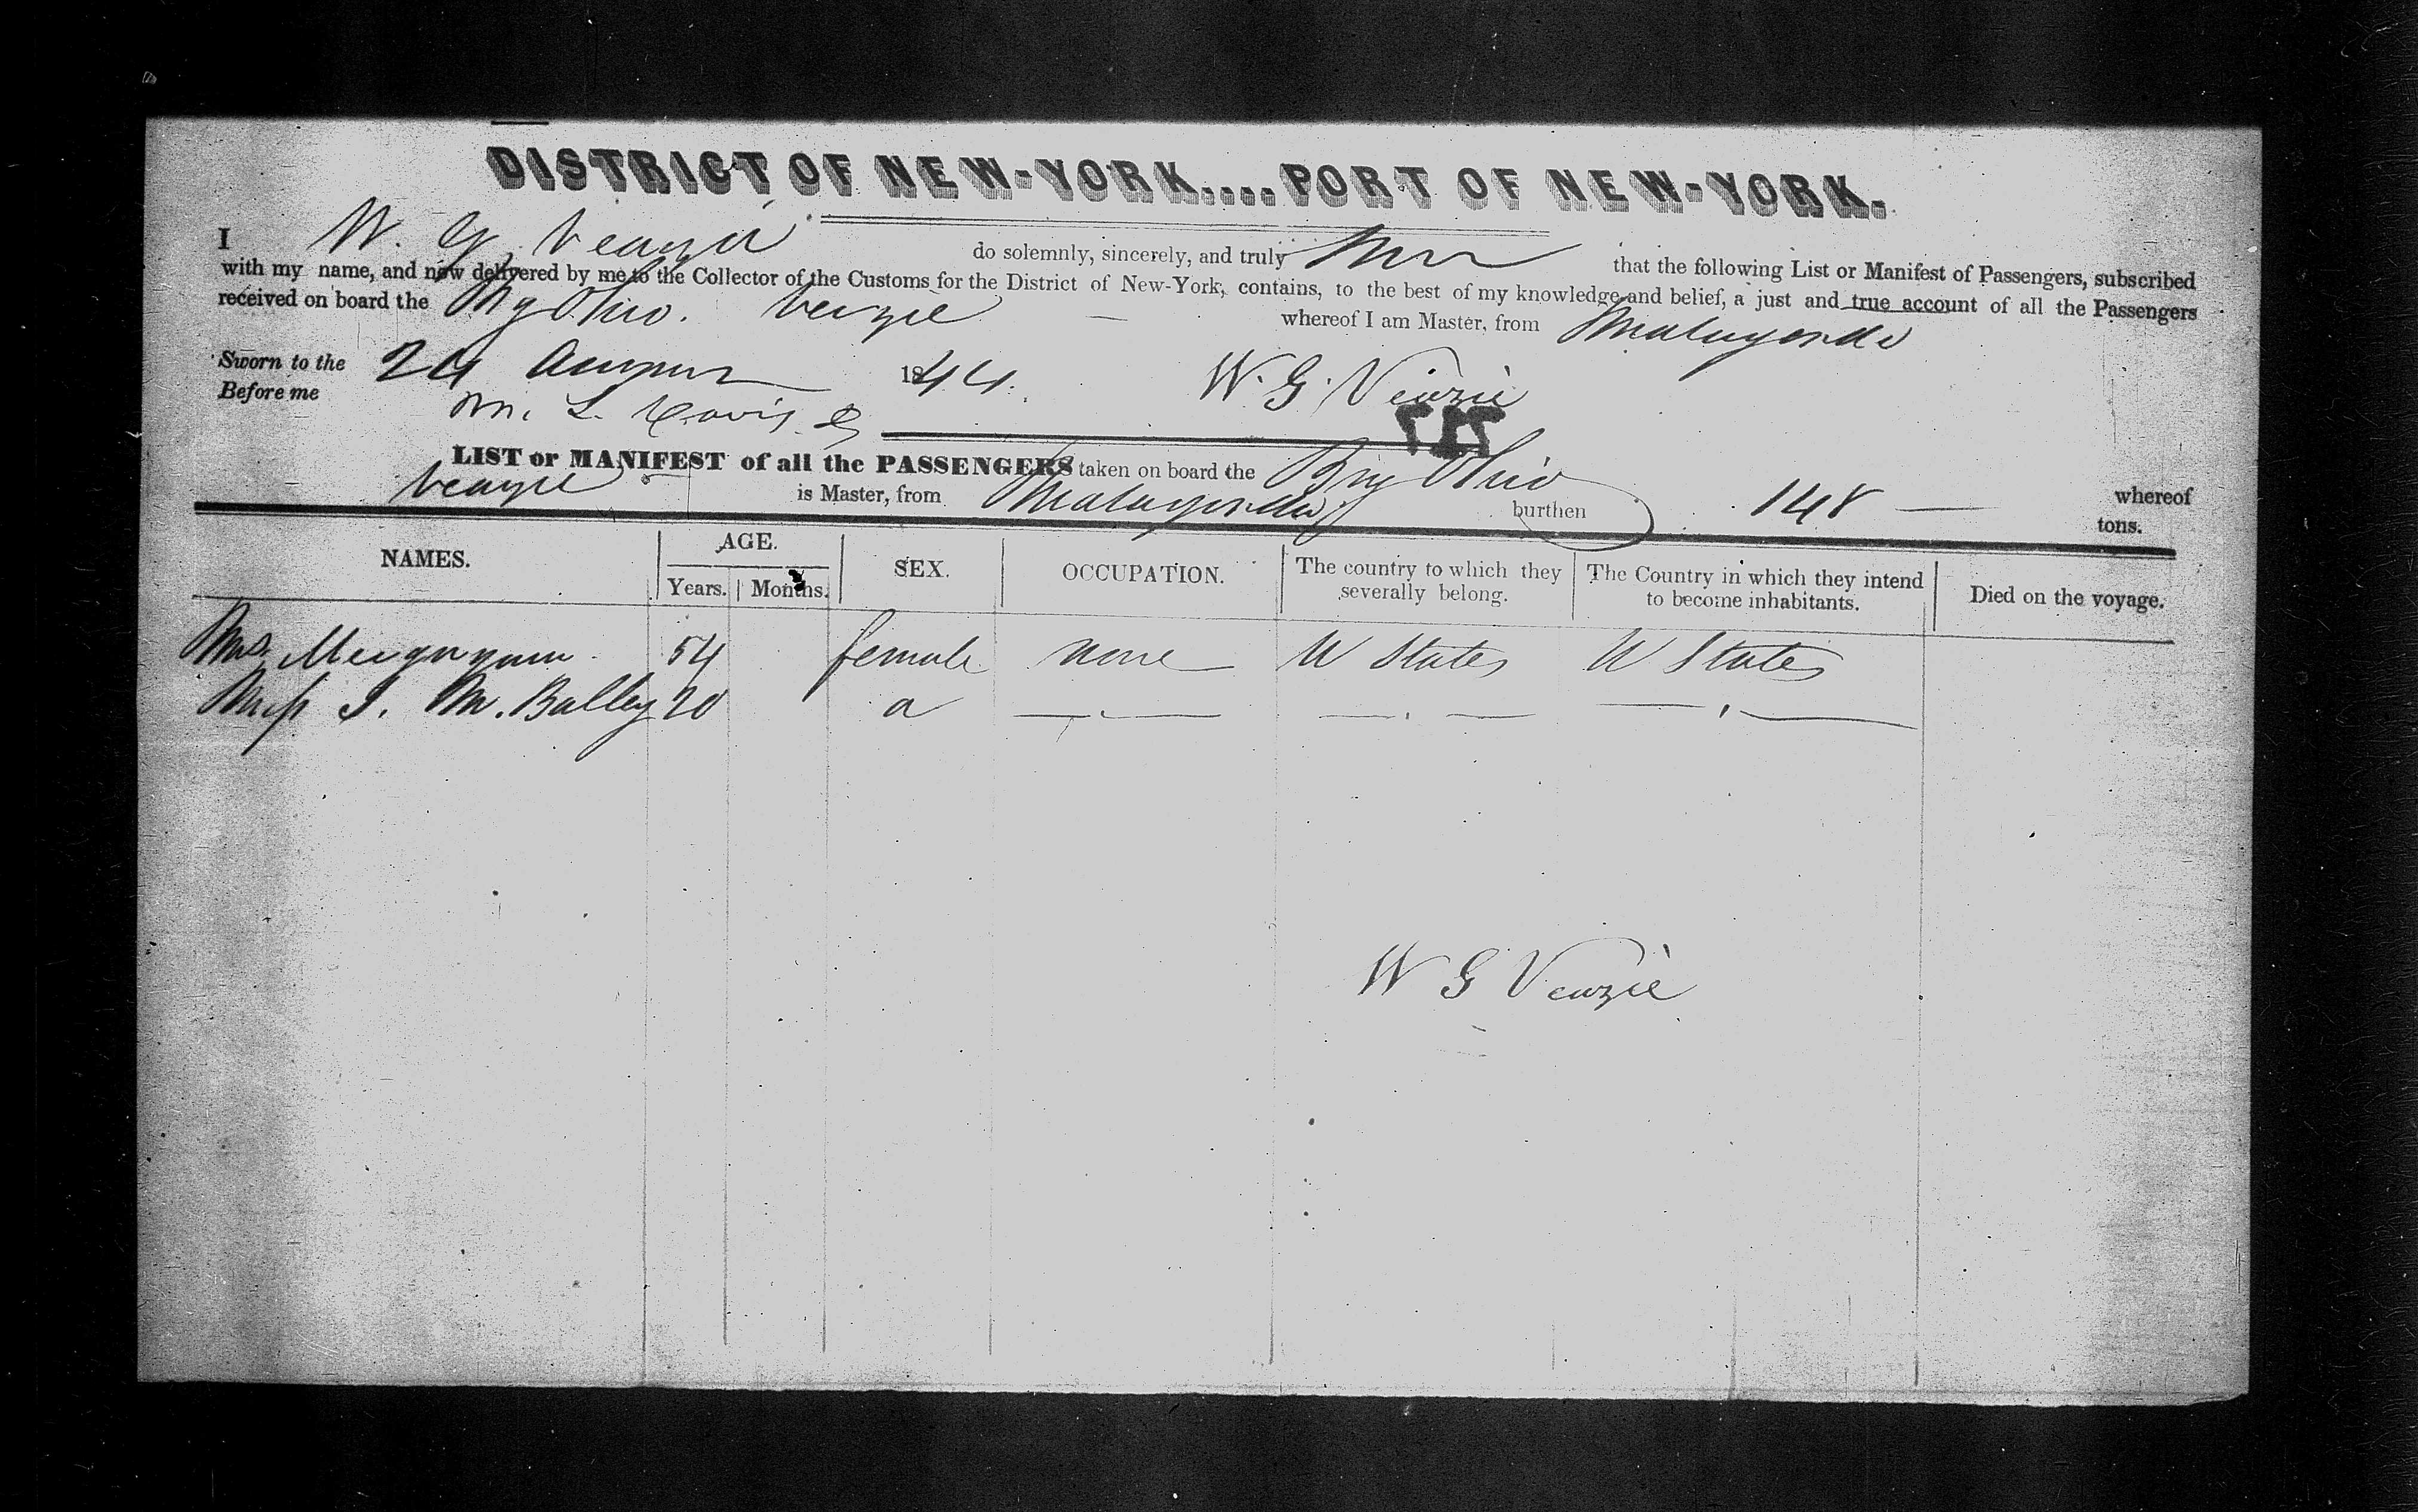 DISTRICT OF NEW-YORK....PORT OF NEW-YORK.
I W. G. Veazie do solemnly, sincerely, and truly that the following List or Manifest of Passengers, subscribed
with my name, and now delivered by me to the Collector of the Customs for the District of New-York, contains, to the best of my knowledge and belief, a just and true account of all the Passengers
received on board the Brig Ohio. Veazie whereof I am Master, from Matagorda
Sworn to the 24 August 1844.
W. G. Veazie
Before me
LIST or MANIFEST of all the PASSENGERS taken on board the Brig Ohio whereof
Veazie is Master, from Matagorda burthen 148 tons.
NAMES. AGE. SEX. OCCUPATION. The country to which they severally belong. The Country in which they intend to become inhabitants. Died on the voyage.
Years. Months.
Mrs 54 female none U States U States
Miss S. M. Balley 20
W G Veazie